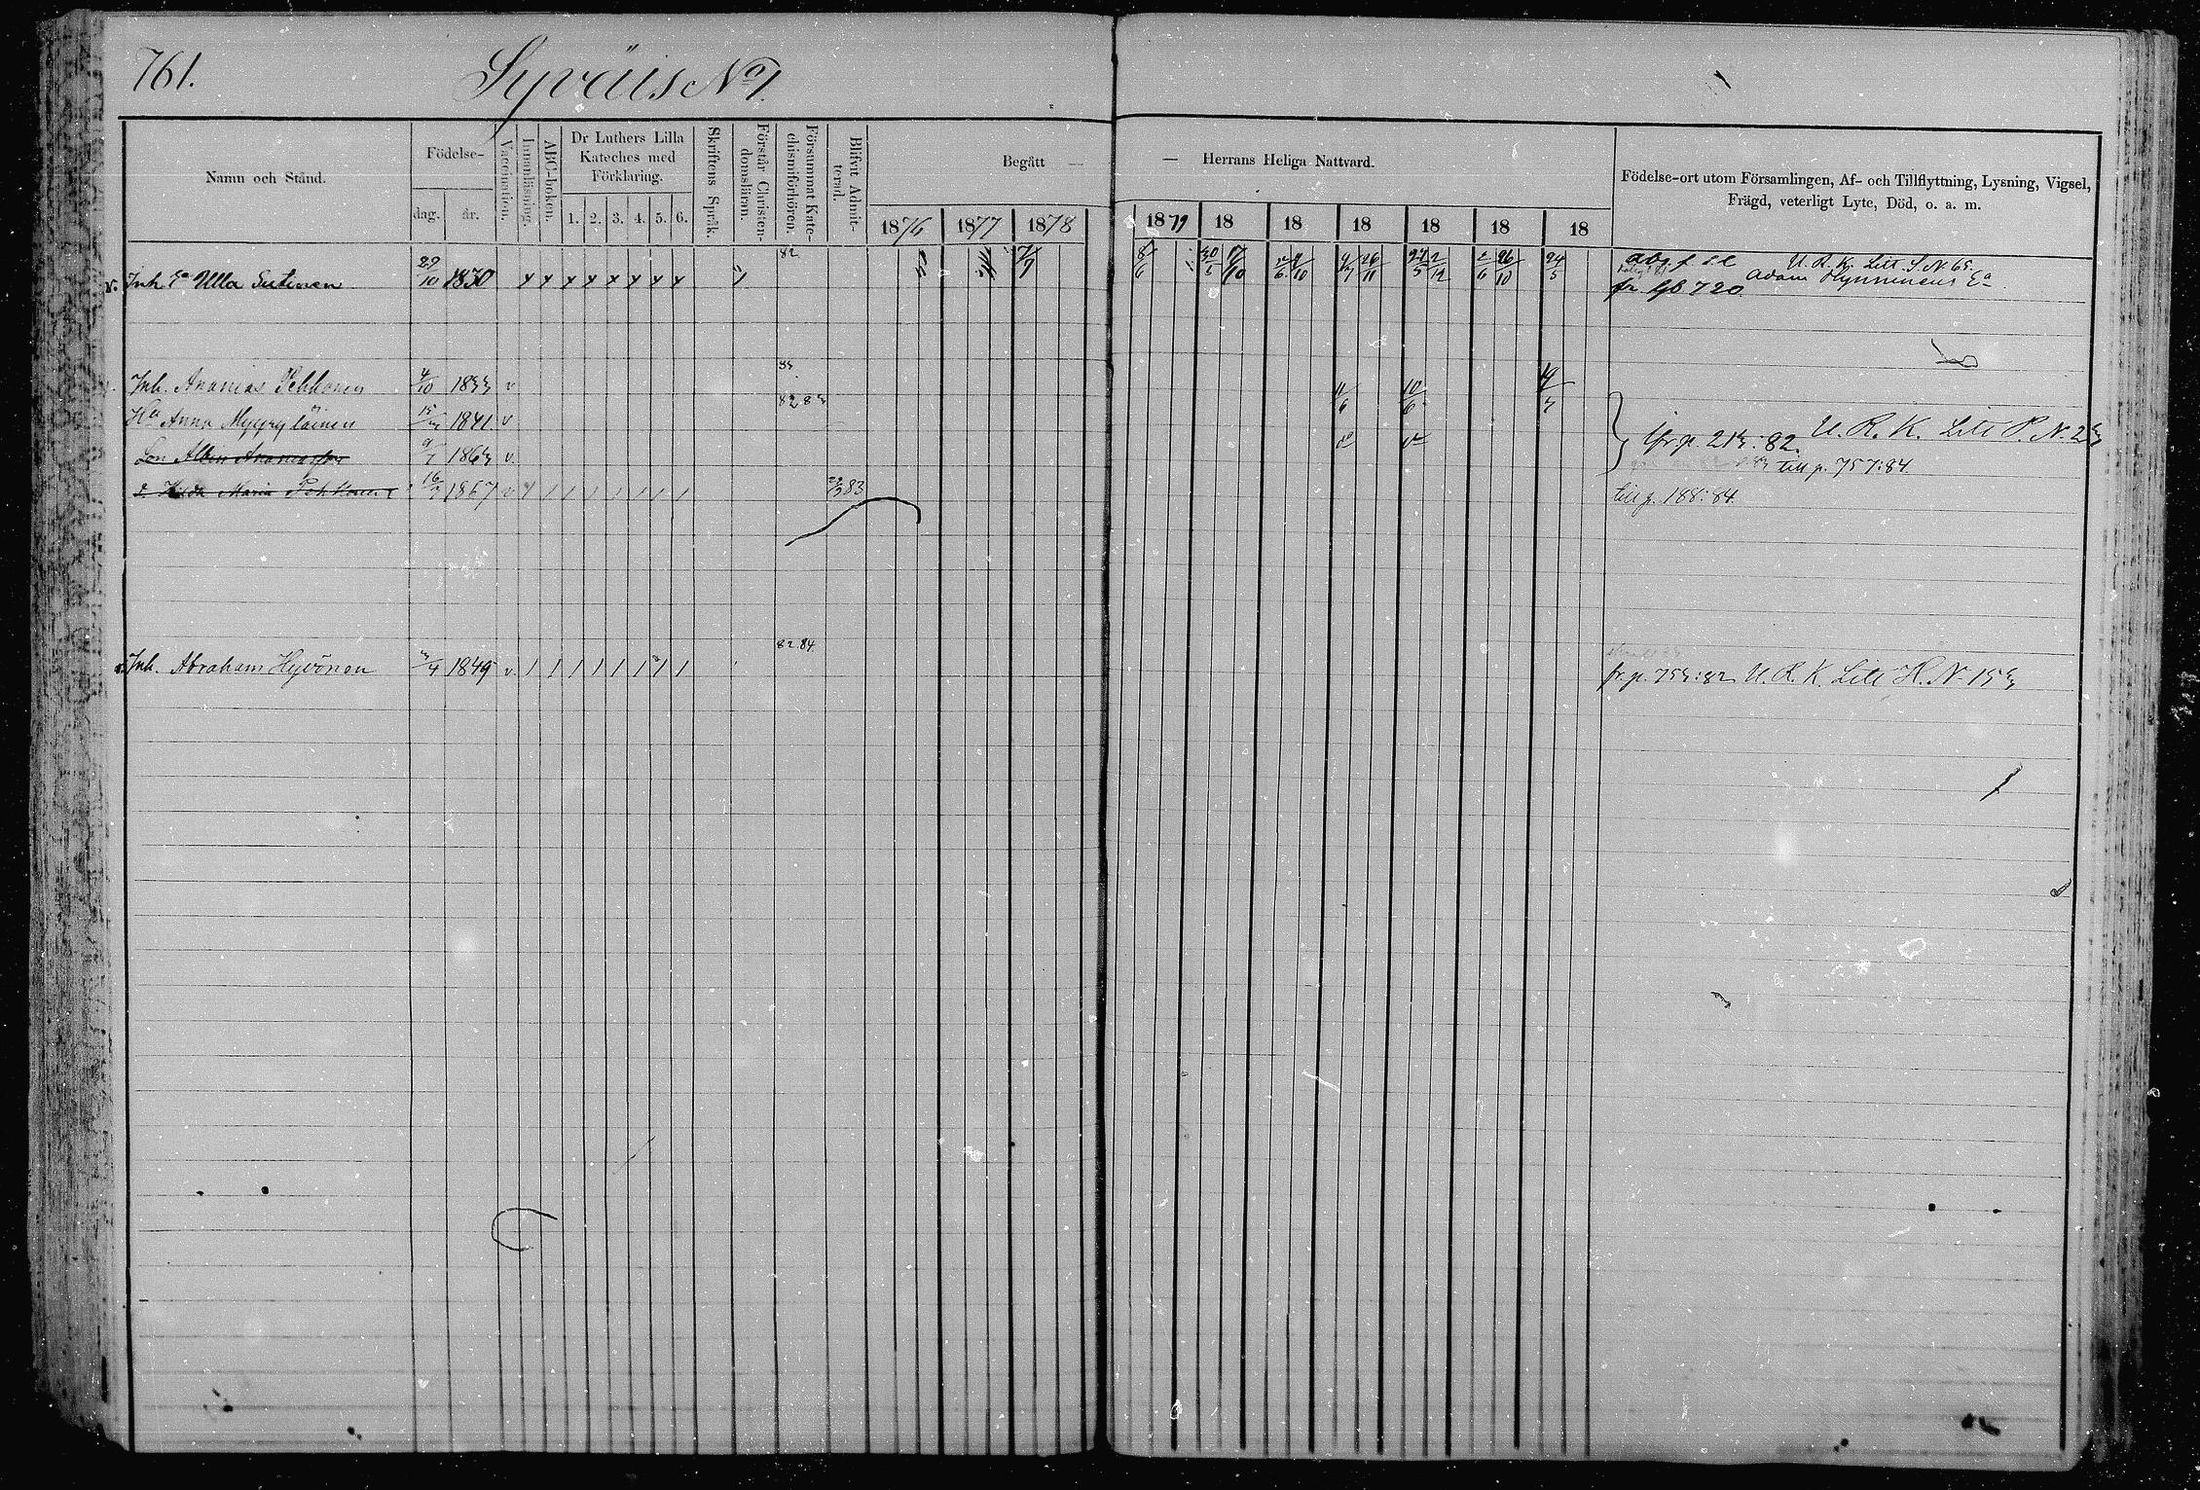 761.
Syväis No 7.
Namn och Stånd.
Födelse-
dag.
år.
Vaccination.
Innanläsning.
ABC-boken.
Dr Luthers Lilla
Kateches med
Förklaring.
1. 2. 3. 4. 5. 6.
Skriftens Språk.
Förstår Christen-
domsläran.
Försummat Kate-
chismiförhören.
Blifvit Admit-
terad.
Begått —
— Herrans Heliga Nattvard.
1876 1877 1878
1879 18 18 18 18 18 18
Födelse-ort utom Församlingen, Af- och Tillflyttning, Lysning, Vigsel,
Frägd, veterligt Lyte, Död, o. a. m.
Inh. Ea Ulla Sutinen 29/10 1830 82
U. R. K. Litt. S. N 65.
fr. 720 Adam Ea
Inh. Ananias Pekkonen 4/10 1833 v
Ha Anna Myyryläinen 1841. v 82 83
fr. p. 213:82. U. R. K. Litt P. N. 23
Son Albin Ananias 1863 v.
till p. 757:84.
d. Hilda Maria Pekkonen 1867 v 83
till p. 188:84.
Inh. Abraham Hyvönen 1849 v. 82.84
fr. p. 753:82 U. R. K. Litt H. N 153